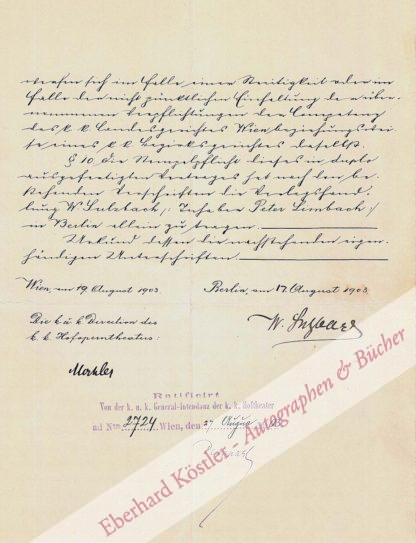 werfen sich im Falle einer Streitigkeit oder im
Falle der nicht pünktlichen Einhaltung der über-
nommenen Verpflichtungen der Competenz
des k. k. Landesgerichtes Wien beziehungswei-
se eines k. k. Bezirksgerichtes daselbst.
§ 10. Die Stempelpflicht dieses in duplo
ausgefertigten Vertrages hat nach den be-
stehenden Vorschriften die Verlagshand-
lung W. Sulzbach /: Inhaber Peter Limbach :/
in Berlin allein zu tragen.
Urkund dessen die nachstehenden eigen-
händigen Unterschriften.
Wien, am 19. August 1903. Berlin, am 17. August 1903
Die k. u. k. Direction des
k. k. Hofoperntheaters:
W. Sulzbach
Mahler
Ratificirt
Von der k. u. k. General-Intendanz der k. k. Hoftheater
ad Nro. 2724 Wien, den 27 August
Eberhard Köstler - Autographen & Bücher